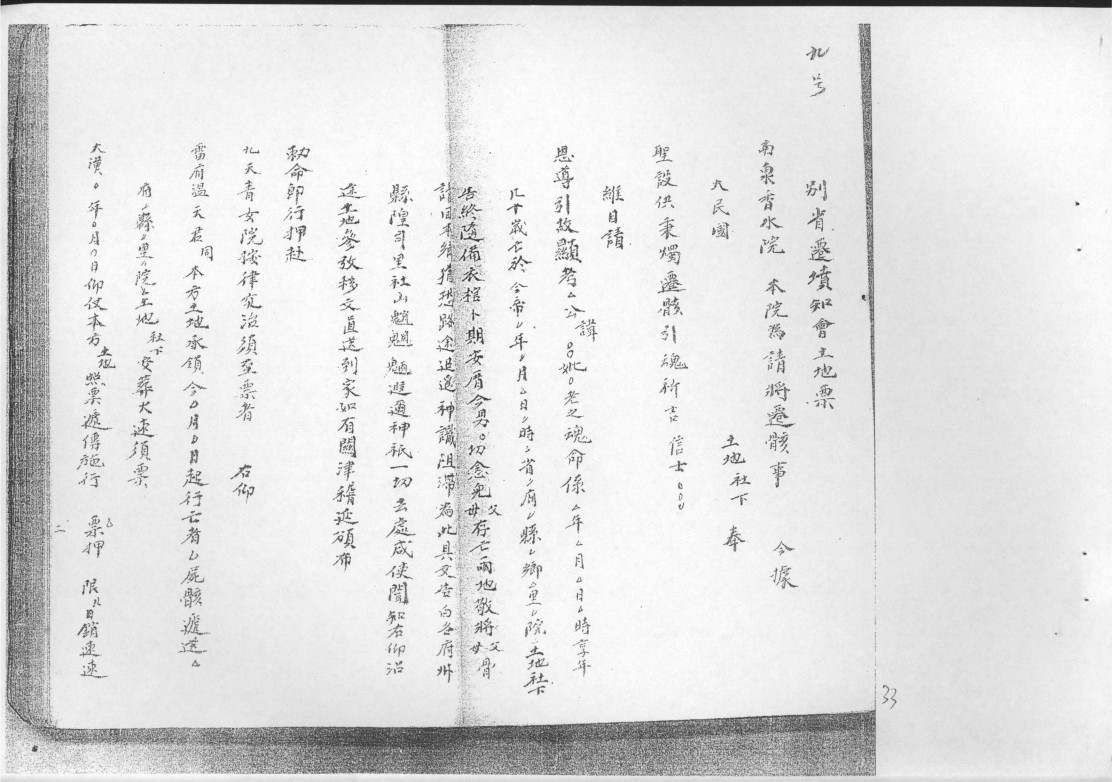 九号
別省遷墳知會土地票
南泉香水院 本院為請將遷骸事 今據
大民國 土地社下 奉
聖設供秉燭遷骸引魂祈吉 信士○○○
維日請
恩尊引故顯考厶公諱○○妣○老之魂命係厶年厶月厶日厶時享年
几十歲亡於今帝厶年厶月厶日厶時厶省厶府厶縣厶鄉厶里厶院土地社下
告終隨備衣棺卜期安厝今男○切念先父母存亡兩地敬將父母骨
請回本鄉猶恐路途迢遙神識阻滯為此具文告白各府州
縣隍司里社山魈魍魎遐邇神祇一切去處咸使聞知右仰沿
途土地參放移文直送到家如有關津稽延頒布
勅命即行押赴
九天青女院按律究治須至票者 右仰
雷府溫天君同本方土地承領今厶月厶日起行亡者厶屍骸遞送厶
府厶縣厶里厶院厶土地社下安葬火速須票
大漢○年○月○日仰仗本方土地照票遞傳施行 票押 限几日銷速速
二
33